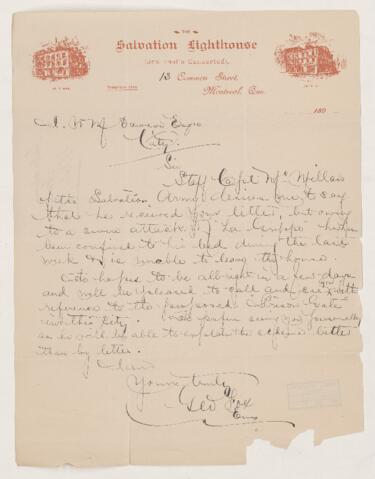 THE
Salvation Lighthouse
13 Common Street,
Montreal, Que.
189
Esqre
City
Sir
Staff Capt McMillan
of the Salvation Army desires me to say
that he received your letter, but owing
to a severe attack of La Grippe has
been confined to his bed during the last
week & is unable to leave the house.
hopes to be allright in a few days
and will be pleased to call and see you with
reference to the proposed Prison Gate
this City. seeing you personally
as he will be able to explain the better
than by letter.
I am
Yours truly
Geo Fox